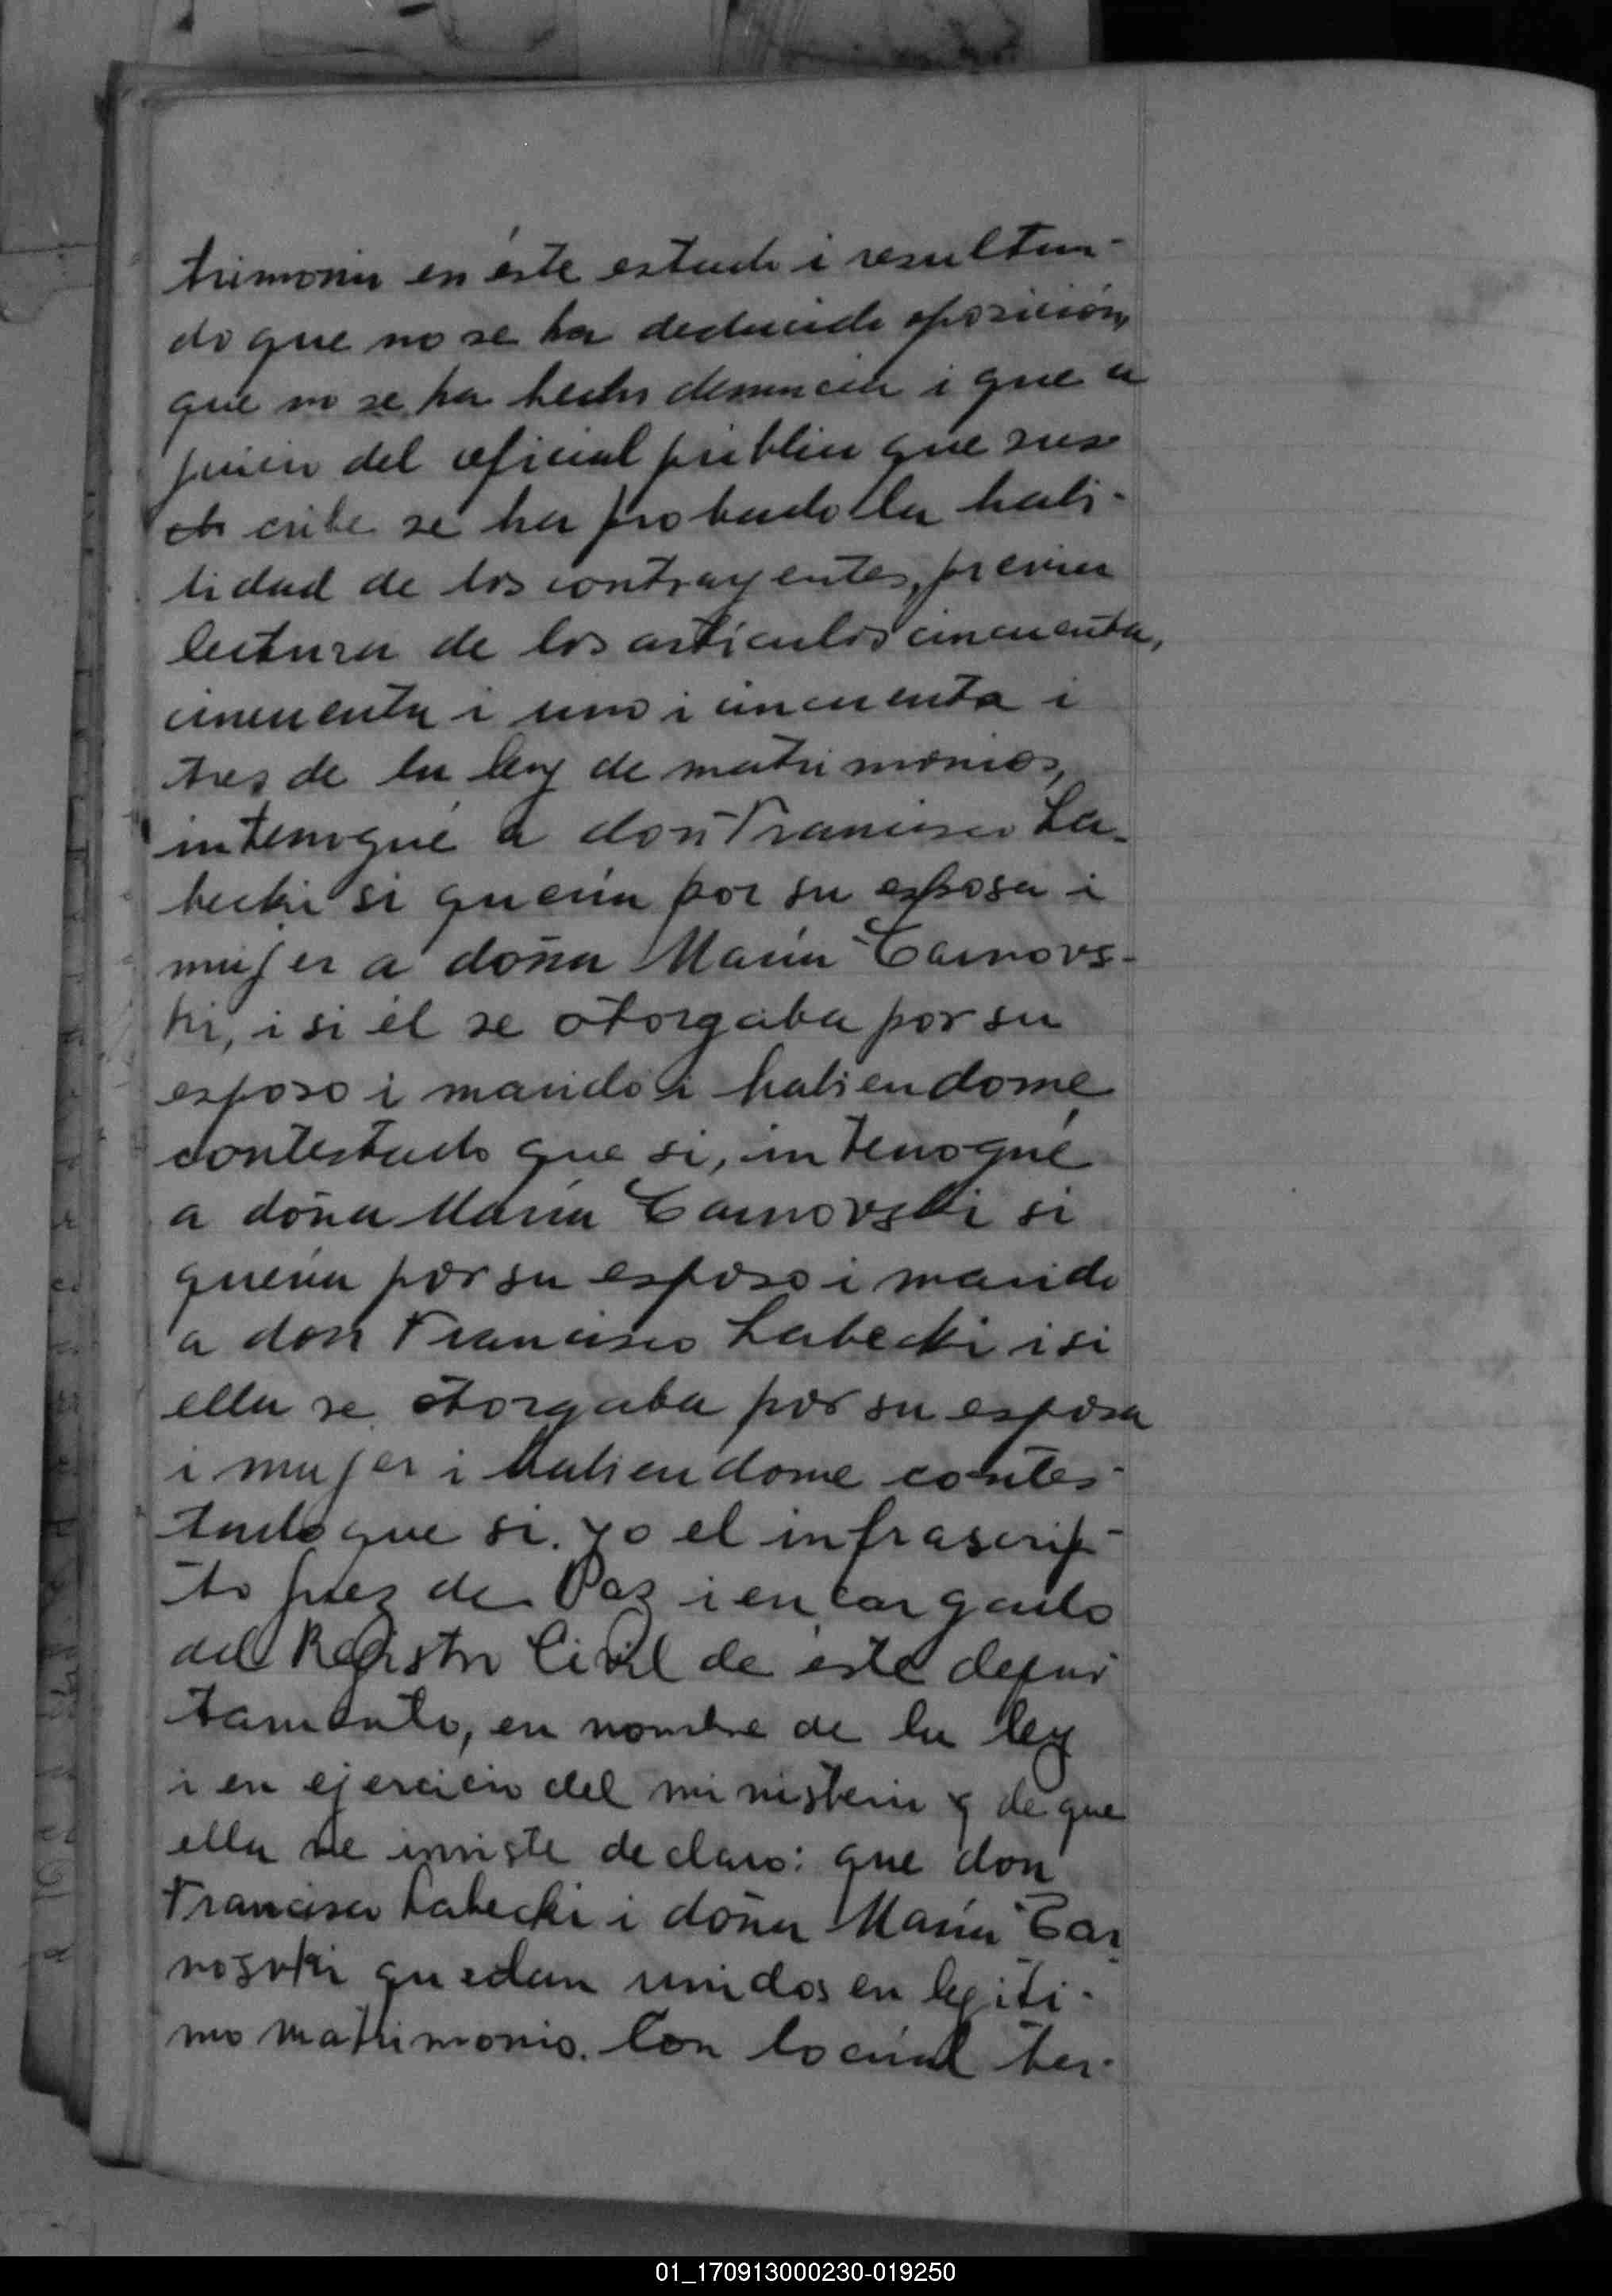 trimonio en éste estado i resultan-
do que no se ha deducido oposición,
que no se ha hecho denuncia i que a
juicio del oficial público que sus
cribe se ha probado la habi-
lidad de los contrayentes, previa
lectura de los artículos cincuenta,
cincuenta i uno i cincuenta i
tres de la ley de matrimonios,
interrogué a don Francisco La-
becki si quería por su esposa i
mujer a doña María Carnovs-
ki, i si él se otorgaba por su
esposo i marido i habiendome
contestado que si, interrogué
a doña María Carnovski si
quería por su esposo i marido
a don Francisco Labecki i si
ella se otorgaba por su esposa
i mujer i habiendome contes-
tado que si. Yo el infrascrip-
to Juez de Paz i encargado
del Registro Civil de éste depar
tamento, en nombre de la ley
i en ejercicio del ministerio y de que
ella me inviste declaro: que don
Francisco Labecki i doña María Car
nosvki quedan unidos en legiti-
mo matrimonio. Con lo cuál ter-
01_170913000230-019250